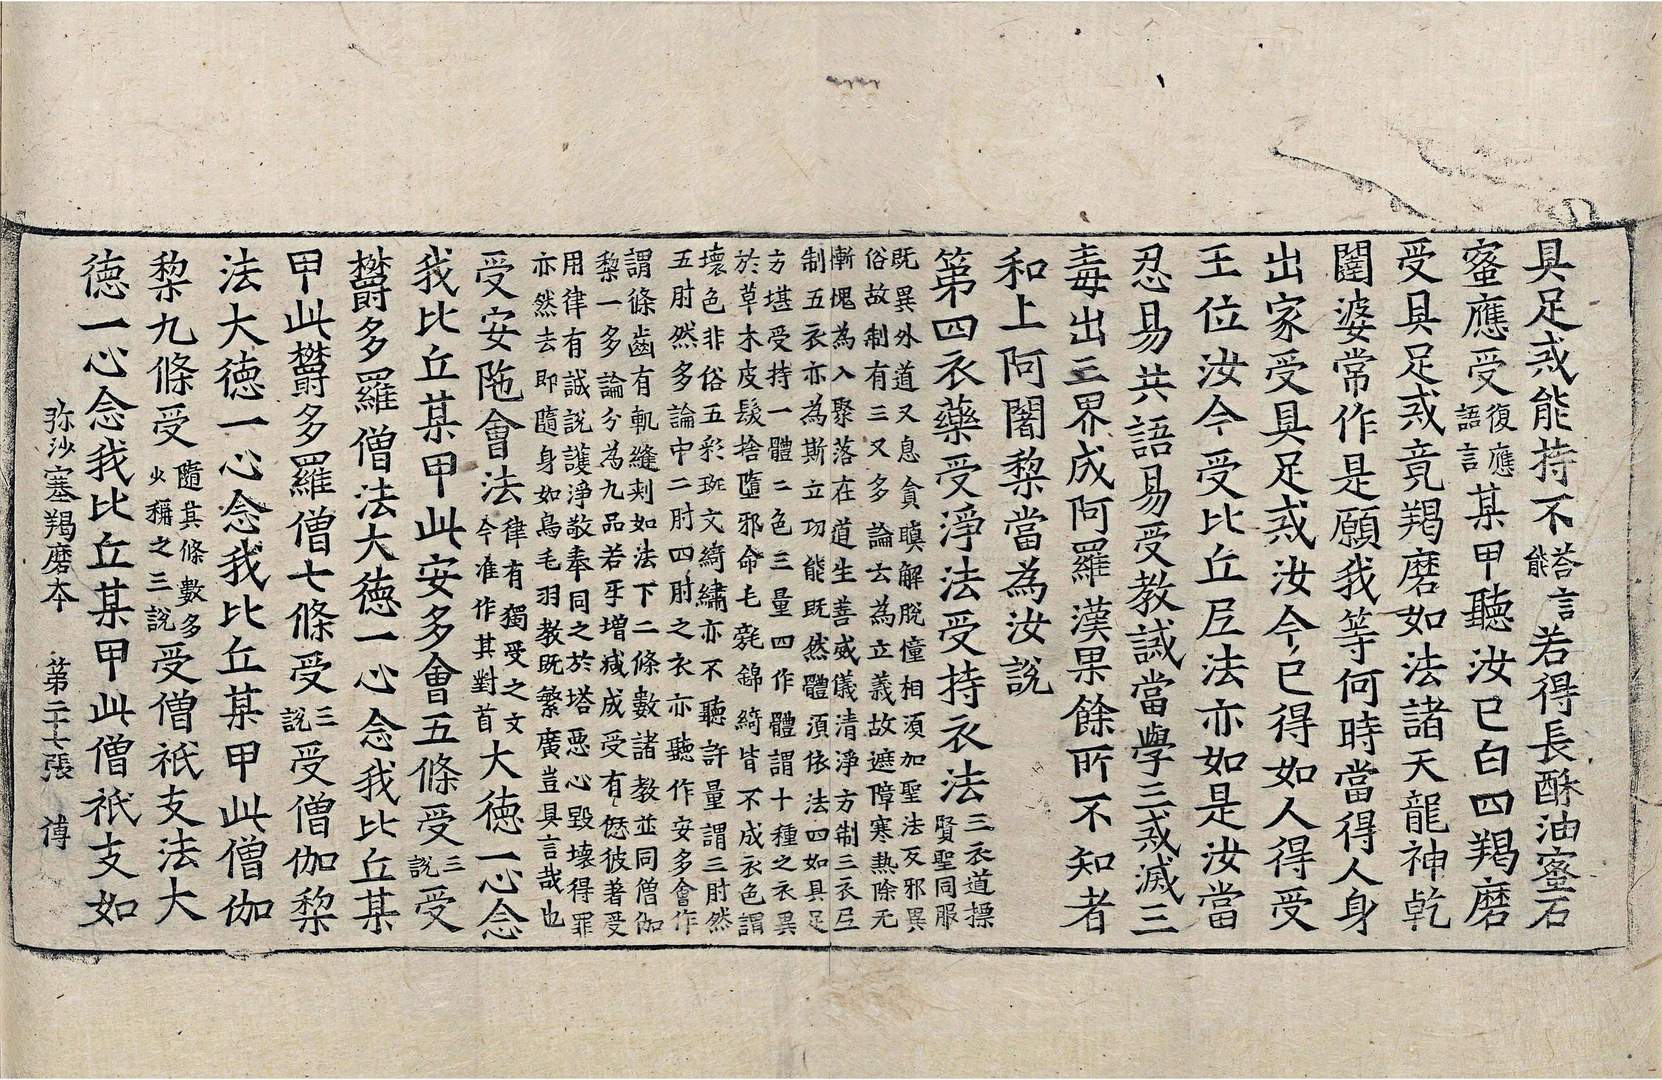 具足戒能持不答言能若得長酥油蜜石
蜜應受復應語言某甲聽汝已白四羯磨
受具足戒竟羯磨如法諸天龍神乾
闥婆常作是願我等何時當得人身
出家受具足戒汝今已得如人得受
王位汝今受比丘尼法亦如是汝當
忍易共語易受教誡當學三戒滅三
毒出三界成阿羅漢果餘所不知者
和上阿闍黎當為汝說
第四衣藥受淨法受持衣法三衣道摽賢聖同服
既異外道又息貪瞋解脫憧相須加聖法反邪異
俗故制有三又多論云為立義故遮障寒熱除无
慚愧為入聚落在道生善威儀清淨方制三衣尼
制五衣亦為斯立功能既然體須依法四如具足
方堪受持一體二色三量四作體謂十種之衣異
於草木皮髮捨墮邪命毛毳錦綺皆不成衣色謂
壞色非俗五彩班文綺繡亦不聽許量謂三肘然
五肘然多論中二肘四肘之衣亦聽作安多會作
謂條齒有軌縫刾如法下二條數諸教並同僧伽
黎一多論分為九品若乎增減成受有𠎝彼著受
用律有誠說護淨敬奉同之於塔惡心毀壞得罪
亦然去即隨身如鳥毛羽教既繁廣豈具言哉也
受安陁會法律有獨受之文今准作其對首大德一心念
我比丘某甲此安多會五條受三說受
欝多羅僧法大德一心念我比丘某
甲此欝多羅僧七條受三說受僧伽黎
法大德一心念我比丘某甲此僧伽
黎九條受隨其條數多少稱之三說受僧祇支法大
德一心念我比丘某甲此僧祇支如
弥沙塞羯磨本 第二十七張 傅